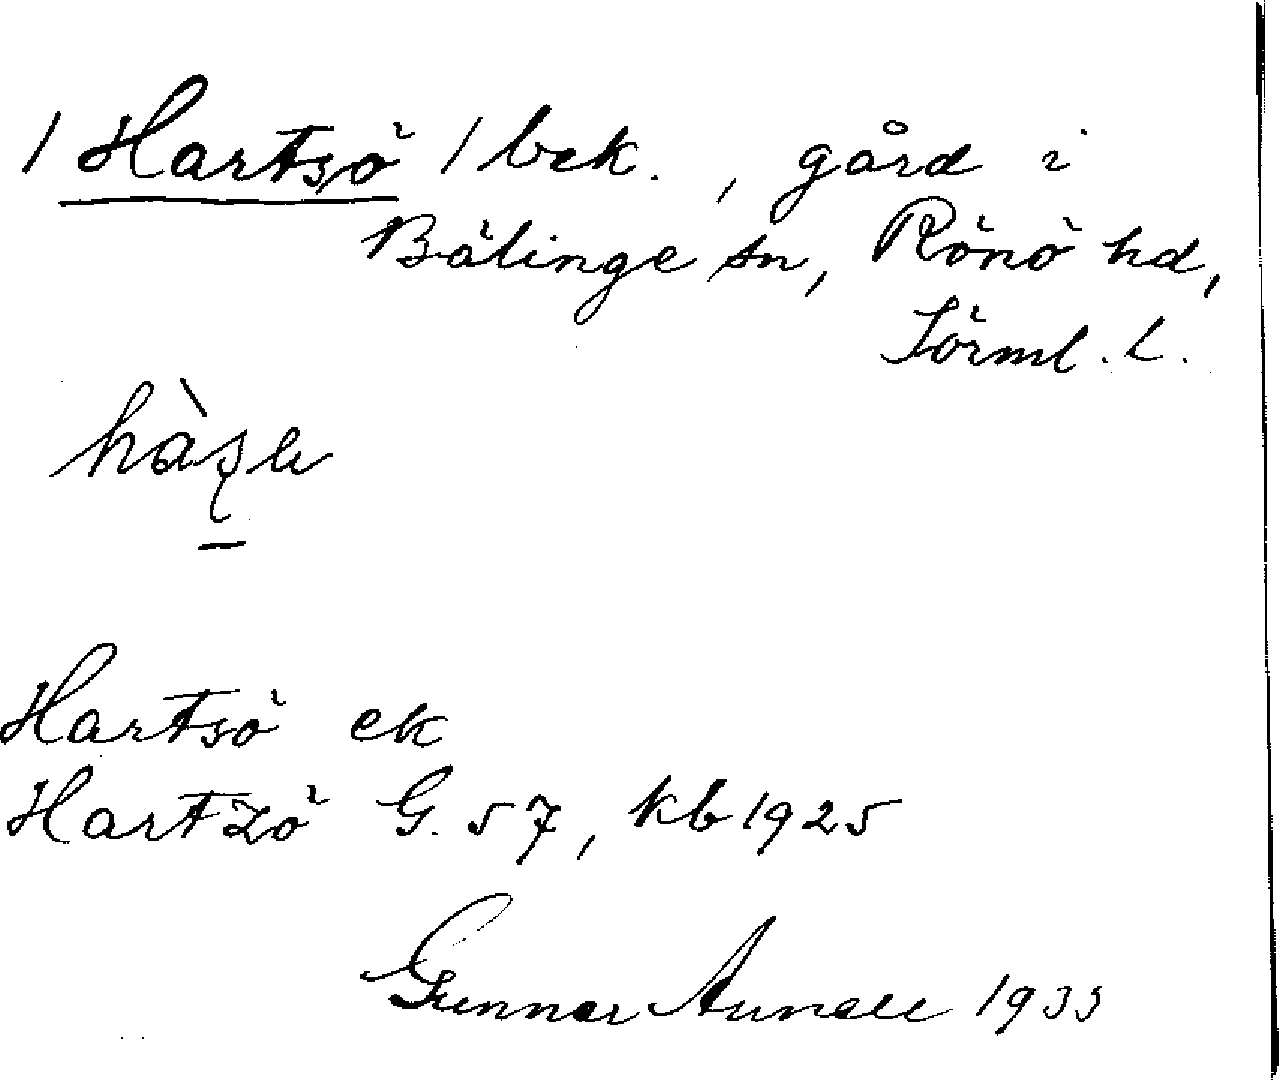 / Hartsö / bek., gård i
Bälinge sn, Rönö hd,
Sörml. L.
Hartsö ek
Hartzö G. 57, kb 1925
Gunnar Aunell 1933